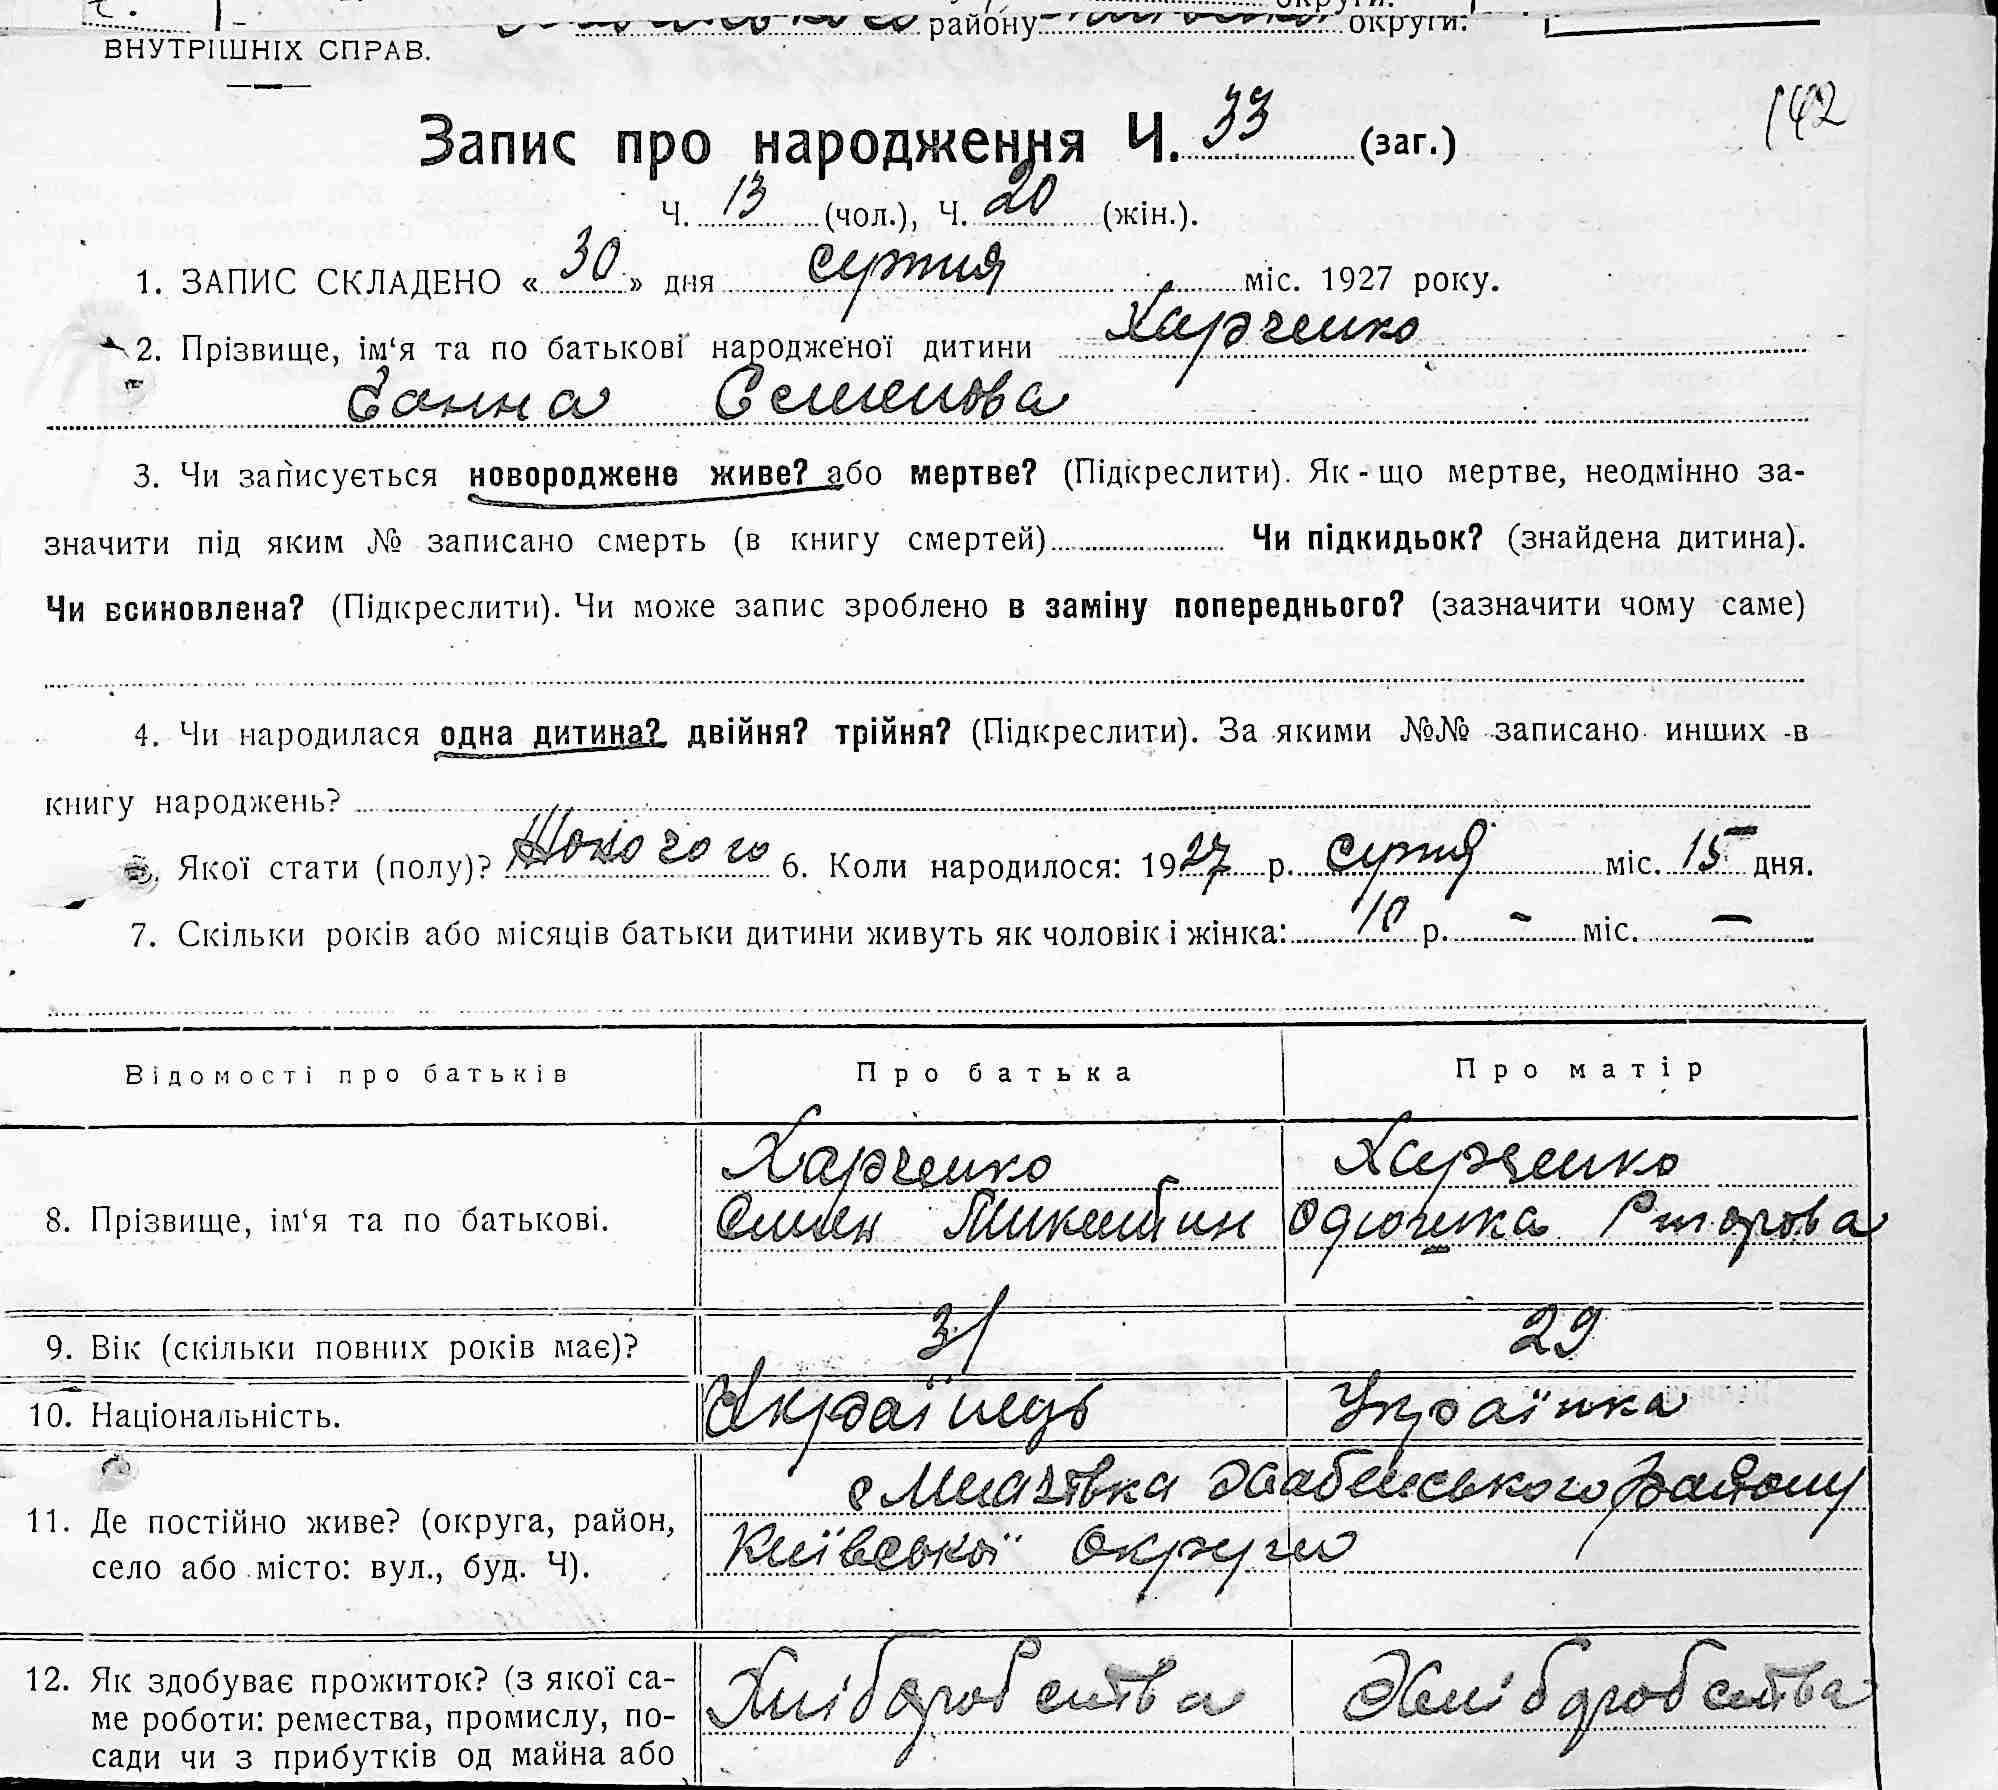 району округи.
ВНУТРІШНІХ СПРАВ.
Запис про народження Ч. 33 (заг.)
142
Ч. 13 (чол.), Ч. 20 (жін.).
1. ЗАПИС СКЛАДЕНО « 30 » дня серпня міс. 1927 року.
2. Прізвище, ім‘я та по батькові народженої дитини Харченко
Ганна Семенова
3. Чи записується новороджене живе? або мертве? (Підкреслити). Як - що мертве, неодмінно за-
значити під яким № записано смерть (в книгу смертей) Чи підкидьок? (знайдена дитина).
Чи всиновлена? (Підкреслити). Чи може запис зроблено в заміну попереднього? (зазначити чому саме)
4. Чи народилася одна дитина? двійня? трійня? (Підкреслити). За якими №№ записано инших в
книгу народжень?
5. Якої стати (полу)? Жоночого 6. Коли народилося: 1927 р. серпня міс. 15 дня.
7. Скільки років або місяців батьки дитини живуть як чоловік і жінка: 10 р. - міс. —
Відомості про батьків Про батька Про матір
8. Прізвище, ім‘я та по батькові. Харченко Харченко
Семен Микитин
9. Вік (скільки повних років має)? 31 29
10. Національність. Українець Українка
11. Де постійно живе? (округа, район, с Хабенського району
село або місто: вул., буд. Ч). Київської округи
12. Як здобуває прожиток? (з якої са- Хліборобства Хліборобства
ме роботи: ремества, промислу, по-
сади чи з прибутків од майна або